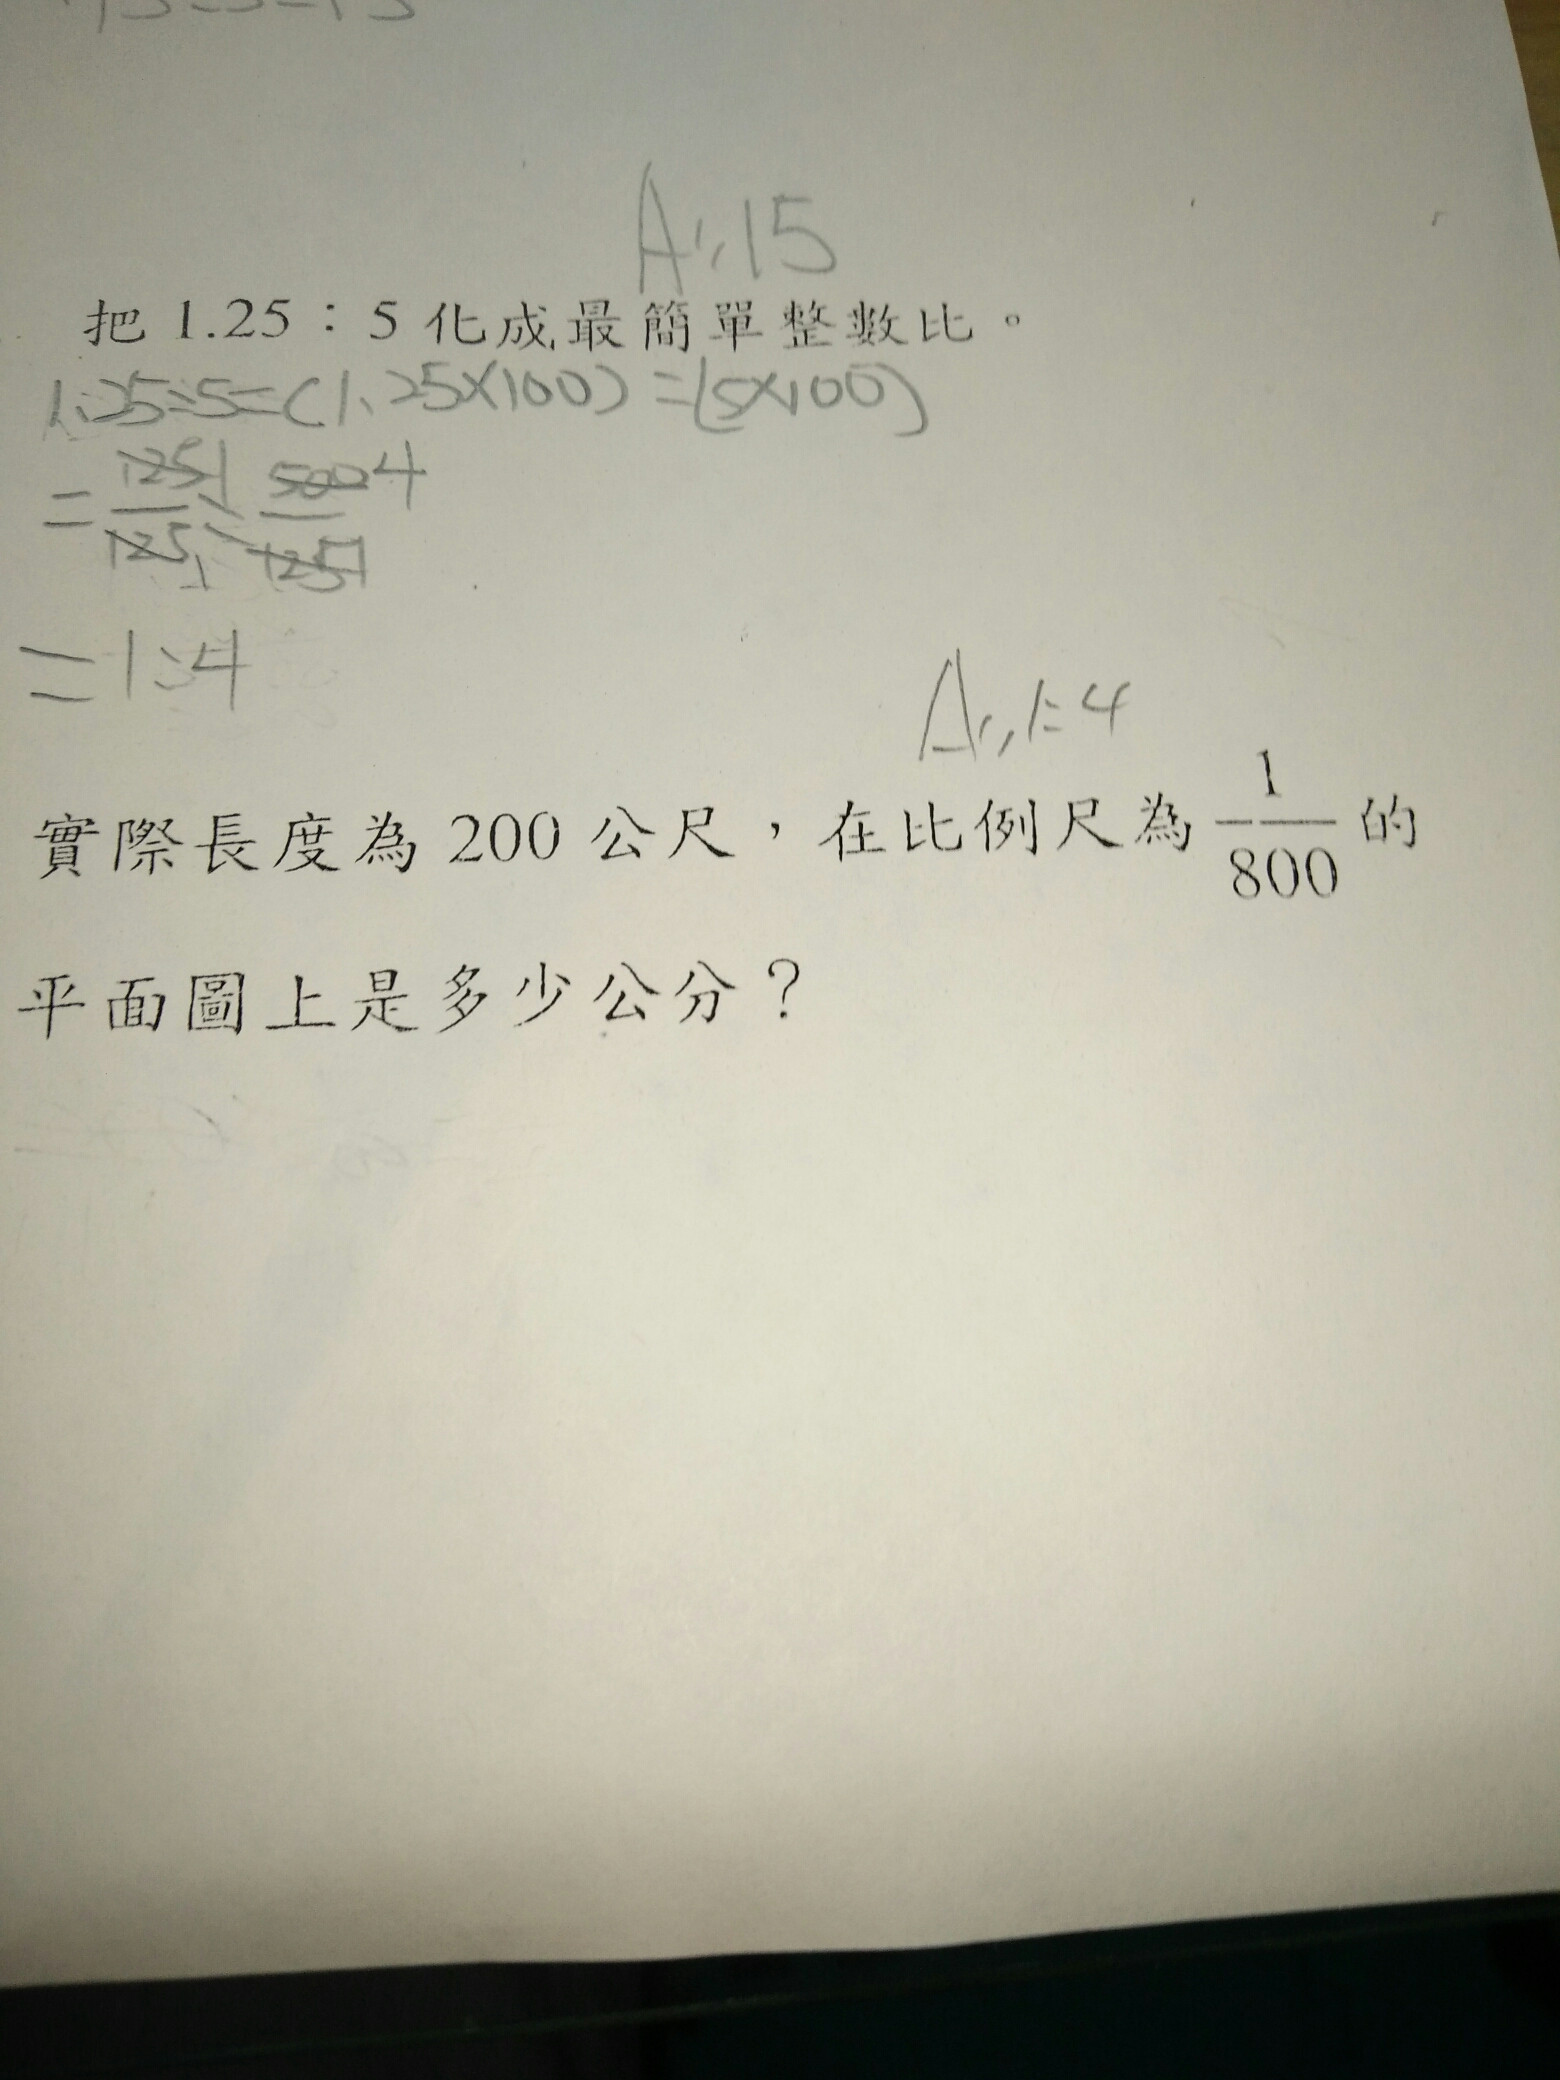 A:,15
把 1.25：5 化成最簡單整數比。
1.25:5=(1.25×100)=(5×100)
=125/125:500/125 1 4 1 1
=1:4
A:,1:4
實際長度為 200 公尺，在比例尺為 1/800 的
平面圖上是多少公分？